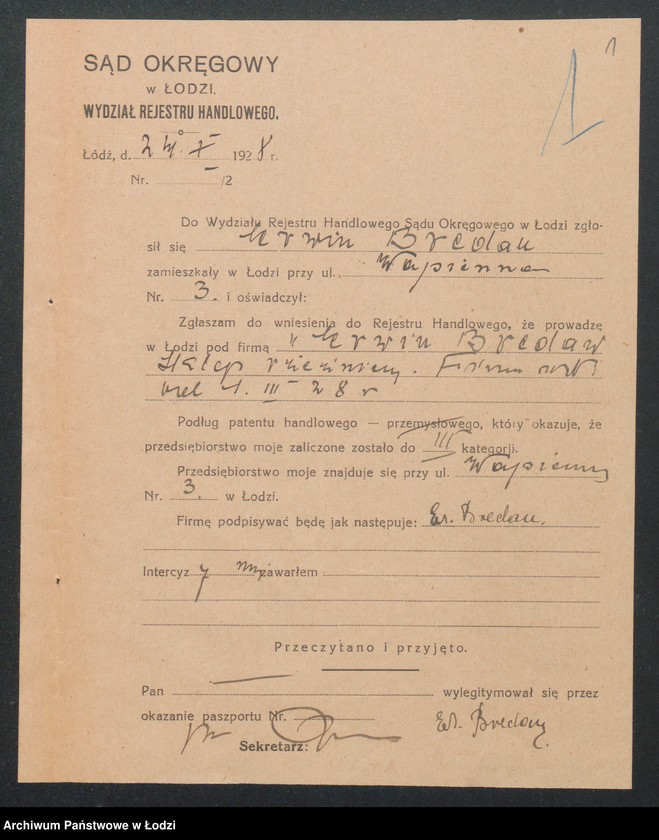 1
1
SĄD OKRĘGOWY
w ŁODZI.
WYDZIAŁ REJESTRU HANDLOWEGO.
Łódź, d. 24. X 1928 r.
Nr. /2
Do Wydziału Rejestru Handlowego Sądu Okręgowego w Łodzi zgło-
sił się Erwin Bredau
zamieszkały w Łodzi przy ul. Wapienna
Nr. 3. i oświadczył:
Zgłaszam do wniesienia do Rejestru Handlowego, że prowadzę
w Łodzi pod firmą "Erwin Bredau
Sklep rzeźniczy. Firma
od 1. III 28 r
Podług patentu handlowego — przemysłowego, który okazuje, że
przedsiębiorstwo moje zaliczone zostało do III kategorji.
Przedsiębiorstwo moje znajduje się przy ul. Wapiennej
Nr. 3. w Łodzi.
Firmę podpisywać będę jak następuje: Er. Bredau.
Intercyzy nie zawarłem
Przeczytano i przyjęto.
Pan wylegitymował się przez
okazanie paszportu Nr. Er. Bredau
Sekretarz:
Archiwum Państwowe w Łodzi